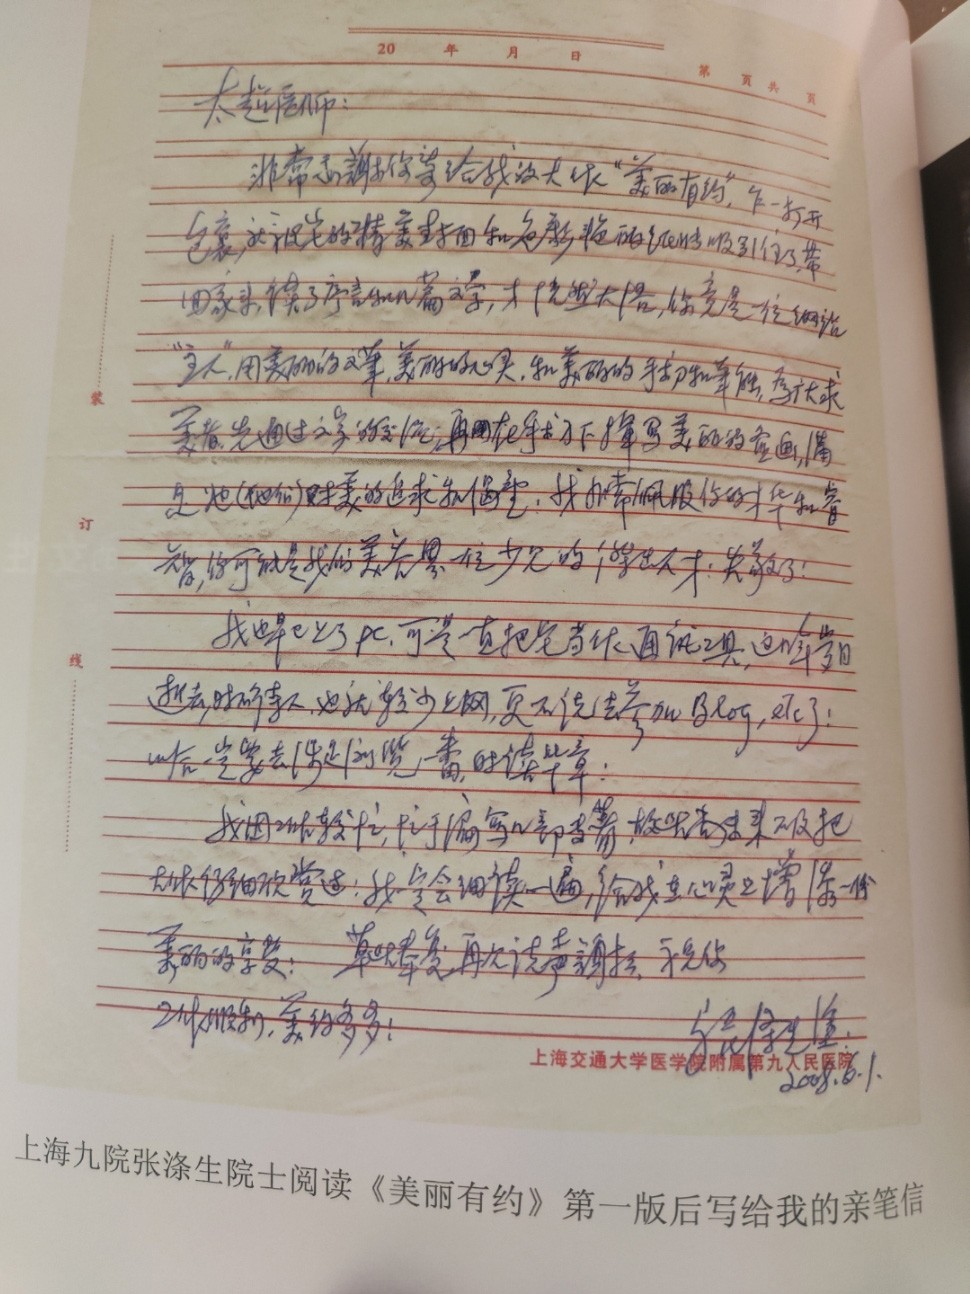 20 年 月 日
第 页 共 页
太超医师：
非常感谢你寄给我的大作“美丽有约”，乍一打开
包裹，就被它的精美封面和色彩艳丽吸引住了，带
回家来，读了序言和几篇文学，才恍然大悟，你竟是一位网站
“主人”，用美丽的文笔，美丽的心灵，和美丽的手术和技能，为广大求
美者先通过文字的交流，再用在手术刀下描写美丽的图画，满
足她（他们）对美的追求和渴望；我非常佩服你的才华和睿
智，你可能是我们美容界一位少见的杰出人才；失敬了！
我也早已上了PC，可是一直把它当作通讯工具，
逝去，时不待人，也就较少上网，更不说去参加Blog，etc了；
以后一定要去你处浏览一番，时读华章；
我因工作较忙，忙于编写几部专著，故
大作仔细欣赏过；我一定会细读一遍，给我在心灵上增添一份
美丽的享受； 草此奉复，再次说声谢谢，并祝你
工作顺利，美约多多！
张涤生
2008.6.1.
装
订
线
上海交通大学医学院附属第九人民医院
上海九院张涤生院士阅读《美丽有约》第一版后写给我的亲笔信